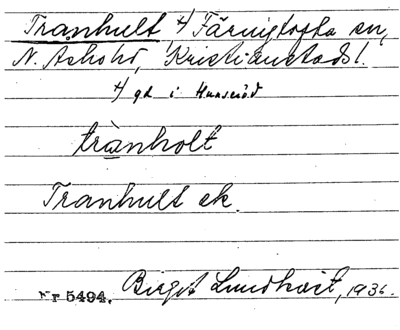 Tranhult +/ Färingtofta sn,
N. Åsbohd, Kristianstads l.
+/ gd i Hunseröd
trànholt
Tranhult ek.
Nr 5494. Birgit Lundkvist, 1936.